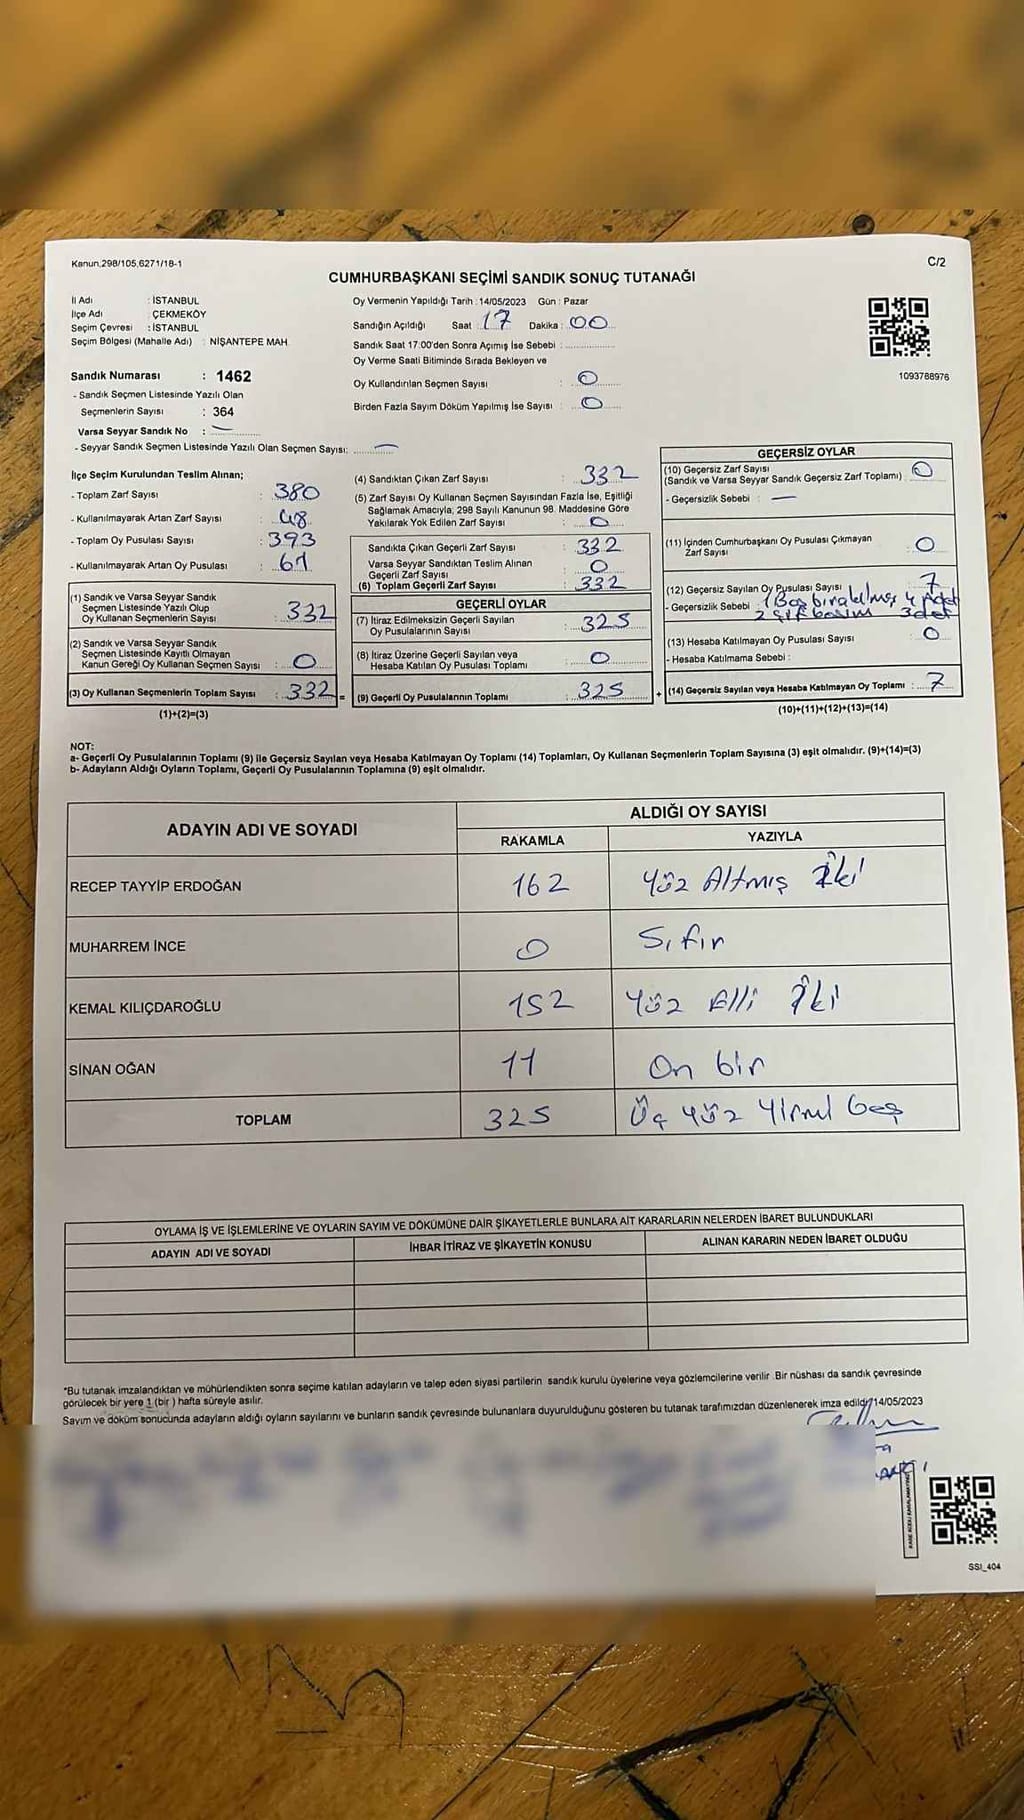 Kanun.298/105,6271/18-1
C/2
CUMHURBAŞKANI SEÇİMİ SANDIK SONUÇ TUTANAĞI
İl Adı : İSTANBUL
İlçe Adı : ÇEKMEKÖY
Seçim Çevresi : İSTANBUL
Seçim Bölgesi (Mahalle Adı) : NİŞANTEPE MAH.
Oy Vermenin Yapıldığı Tarih : 14/05/2023 Gün : Pazar
Sandığın Açıldığı Saat : 17 Dakika : 00
Sandık Saat 17:00'den Sonra Açmış İse Sebebi :
Oy Verme Saati Bitiminde Sırada Bekleyen ve
Oy Kullandırılan Seçmen Sayısı : 0
Birden Fazla Sayım Döküm Yapılmış İse Sayısı : 0
1093788976
Sandık Numarası : 1462
- Sandık Seçmen Listesinde Yazılı Olan
Seçmenlerin Sayısı : 364
Varsa Seyyar Sandık No : —
- Seyyar Sandık Seçmen Listesinde Yazılı Olan Seçmen Sayısı: —
İlçe Seçim Kurulundan Teslim Alınan;
- Toplam Zarf Sayısı : 380
- Kullanılmayarak Artan Zarf Sayısı : 48
- Toplam Oy Pusulası Sayısı : 393
- Kullanılmayarak Artan Oy Pusulası : 61
(1) Sandık ve Varsa Seyyar Sandık
Seçmen Listesinde Yazılı Olup
Oy Kullanan Seçmenlerin Sayısı : 332
(2) Sandık ve Varsa Seyyar Sandık
Seçmen Listesinde Kayıtlı Olmayan
Kanun Gereği Oy Kullanan Seçmen Sayısı : 0
(3) Oy Kullanan Seçmenlerin Toplam Sayısı : 332 =
(1)+(2)=(3)
(4) Sandıktan Çıkan Zarf Sayısı : 332
(5) Zarf Sayısı Oy Kullanan Seçmen Sayısından Fazla İse, Eşitliği
Sağlamak Amacıyla; 298 Sayılı Kanunun 98. Maddesine Göre
Yakılarak Yok Edilen Zarf Sayısı : 0
Sandıkta Çıkan Geçerli Zarf Sayısı : 332
Varsa Seyyar Sandıktan Teslim Alınan
Geçerli Zarf Sayısı : 0
(6) Toplam Geçerli Zarf Sayısı : 332
GEÇERLİ OYLAR
(7) İtiraz Edilmeksizin Geçerli Sayılan
Oy Pusulalarının Sayısı : 325
(8) İtiraz Üzerine Geçerli Sayılan veya
Hesaba Katılan Oy Pusulası Toplamı : 0
(9) Geçerli Oy Pusulalarının Toplamı : 325 +
GEÇERSİZ OYLAR
(10) Geçersiz Zarf Sayısı
(Sandık ve Varsa Seyyar Sandık Geçersiz Zarf Toplamı) : 0
- Geçersizlik Sebebi : —
(11) İçinden Cumhurbaşkanı Oy Pusulası Çıkmayan
Zarf Sayısı : 0
(12) Geçersiz Sayılan Oy Pusulası Sayısı : 7
- Geçersizlik Sebebi 1 Boş bırakılmış 4 Adet
2 Çift basım 3 adet
(13) Hesaba Katılmayan Oy Pusulası Sayısı : 0
- Hesaba Katılmama Sebebi :
(14) Geçersiz Sayılan veya Hesaba Katılmayan Oy Toplamı : 7
(10)+(11)+(12)+(13)=(14)
NOT:
a- Geçerli Oy Pusulalarının Toplamı (9) ile Geçersiz Sayılan veya Hesaba Katılmayan Oy Toplamı (14) Toplamları, Oy Kullanan Seçmenlerin Toplam Sayısına (3) eşit olmalıdır. (9)+(14)=(3)
b- Adayların Aldığı Oyların Toplamı, Geçerli Oy Pusulalarının Toplamına (9) eşit olmalıdır.
ADAYIN ADI VE SOYADI
ALDIĞI OY SAYISI
RAKAMLA YAZIYLA
RECEP TAYYİP ERDOĞAN 162 Yüz Altmış İki
MUHARREM İNCE 0 Sıfır
KEMAL KILIÇDAROĞLU 152 Yüz Elli İki
SİNAN OĞAN 11 On bir
TOPLAM 325 Üç yüz Yirmi beş
OYLAMA İŞ VE İŞLEMLERİNE VE OYLARIN SAYIM VE DÖKÜMÜNE DAİR ŞİKAYETLERLE BUNLARA AİT KARARLARIN NELERDEN İBARET BULUNDUKLARI
ADAYIN ADI VE SOYADI İHBAR İTİRAZ VE ŞİKAYETİN KONUSU ALINAN KARARIN NEDEN İBARET OLDUĞU
*Bu tutanak imzalandıktan ve mühürlendikten sonra seçime katılan adayların ve talep eden siyasi partilerin sandık kurulu üyelerine veya gözlemcilerine verilir. Bir nüshası da sandık çevresinde
görülecek bir yere 1 (bir ) hafta süreyle asılır.
Sayım ve döküm sonucunda adayların aldığı oyların sayılarını ve bunların sandık çevresinde bulunanlara duyurulduğunu gösteren bu tutanak tarafımızdan düzenlenerek imza edildi. 14/05/2023
SSI_404